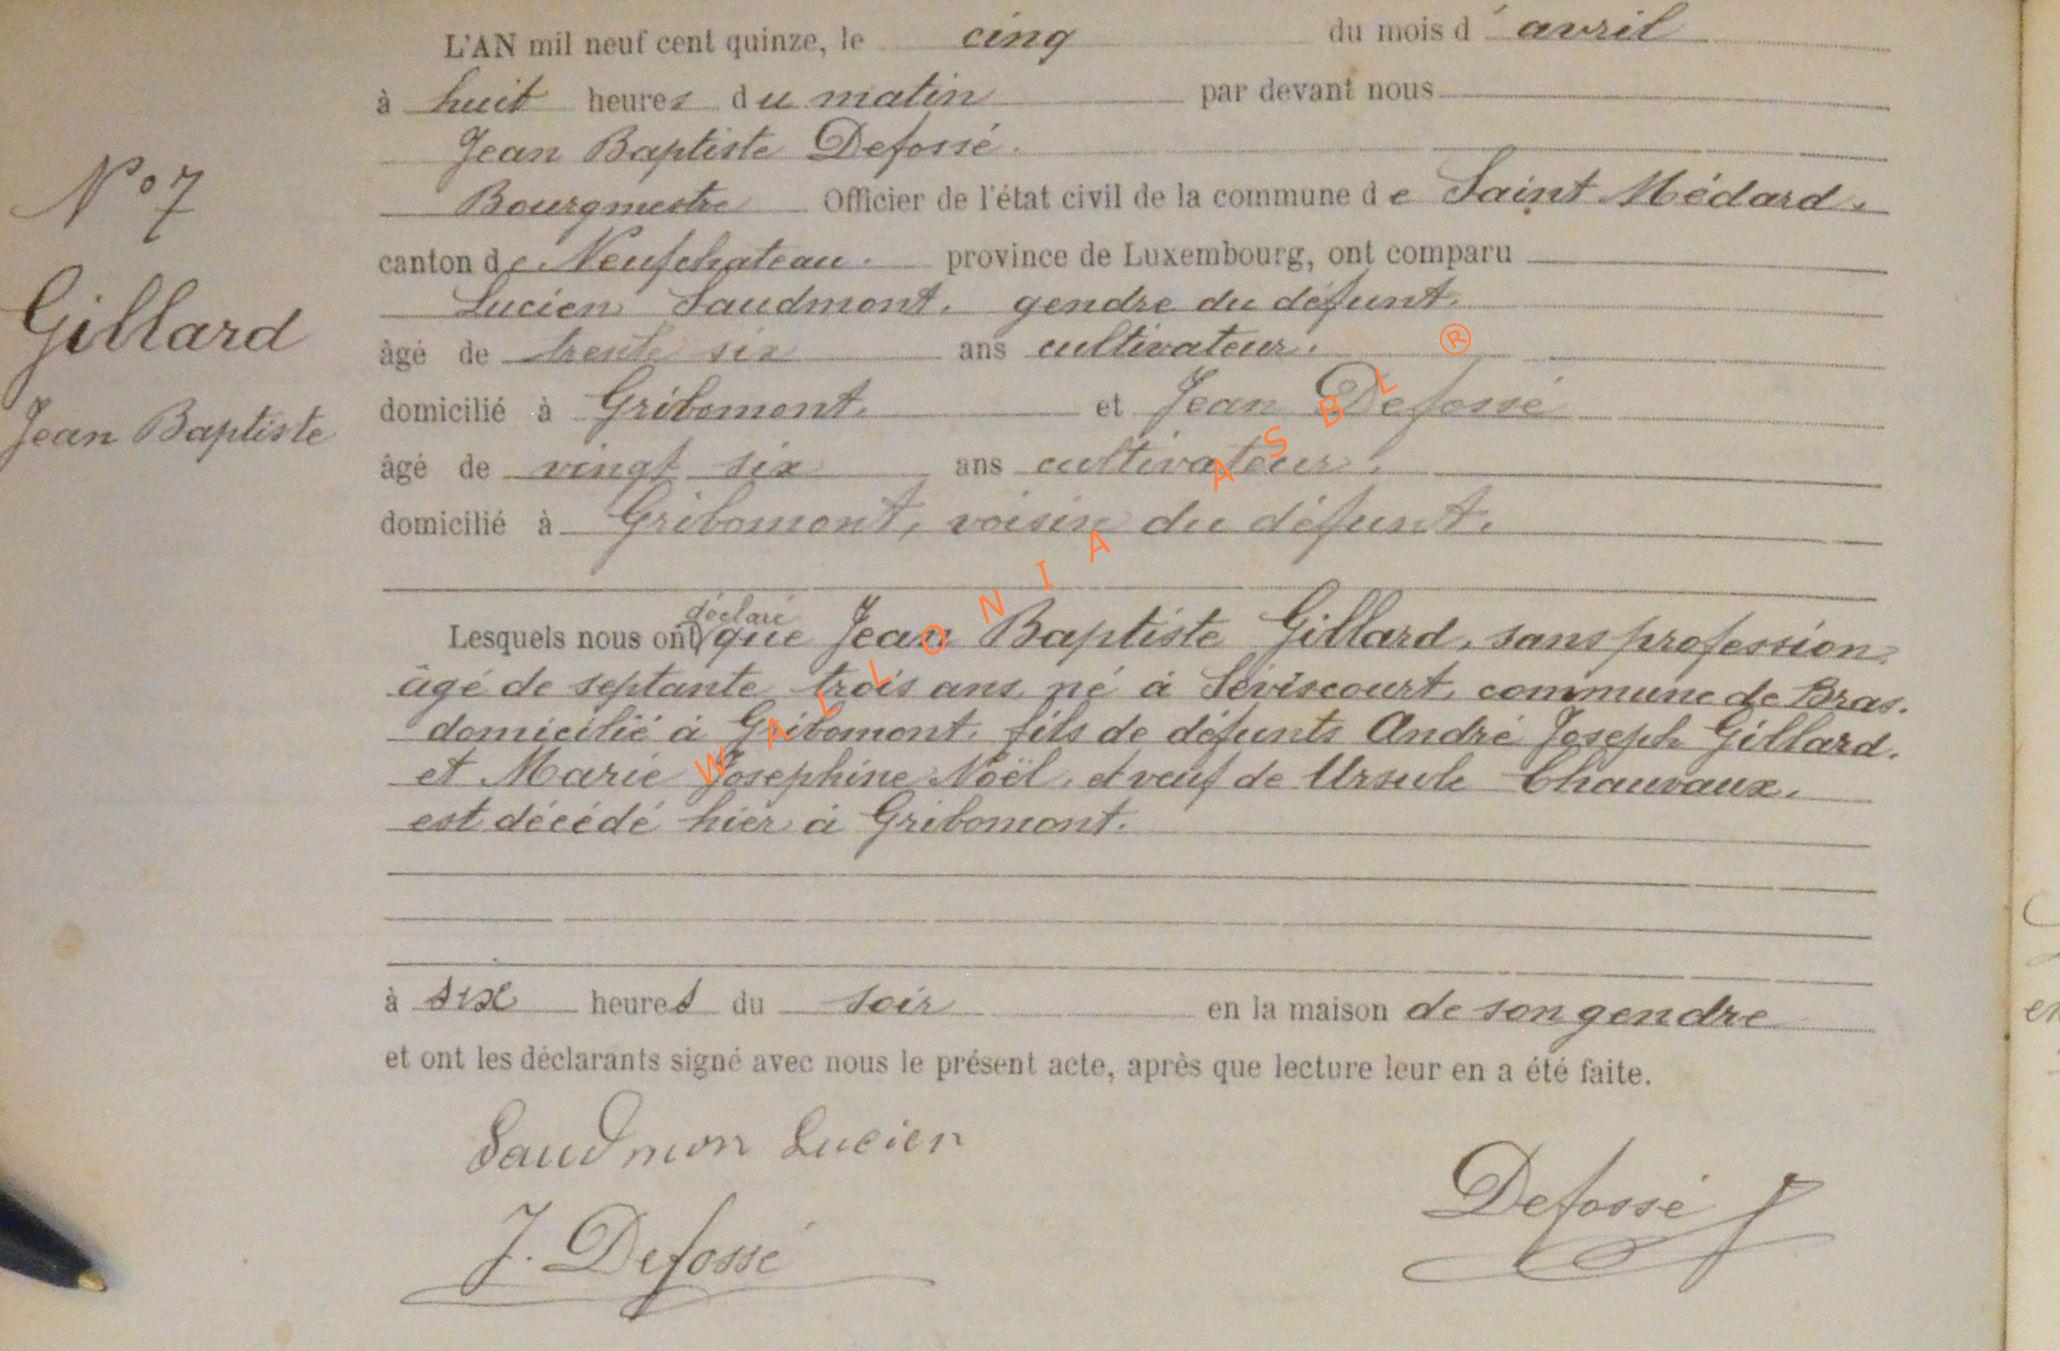 L'AN mil neuf cent quinze, le cinq du mois d'avril
à huit heures du matin par devant nous
Jean Baptiste Defossé.
Bourgmestre Officier de l'état civil de la commune de Saint Médard.
canton de Neufchateau. province de Luxembourg, ont comparu
Lucien Saudmont, gendre du défunt.
âgé de trente six ans cultivateur.
domicilié à Gribomont. et Jean Defossé
âgé de vingt six ans cultivateur.
domicilié à Gribomont, voisin du défunt.
N° 7
Gillard
Jean Baptiste
déclaré
Lesquels nous ont que Jean Baptiste Gillard, sans profession,
âgé de septante trois ans né à Séviscourt, commune de Bras.
domicilié à Gribomont, fils de défunts André Joseph Gillard.
et Marie Josephine Noël, et veuf de Ursule Chauvaux.
est décédé hier à Gribomont.
à six heures du soir en la maison de son gendre
et ont les déclarants signé avec nous le présent acte, après que lecture leur en a été faite.
Saudmon Lucien
J. Defossé
Defossé J
WALLONIA ASBL ®